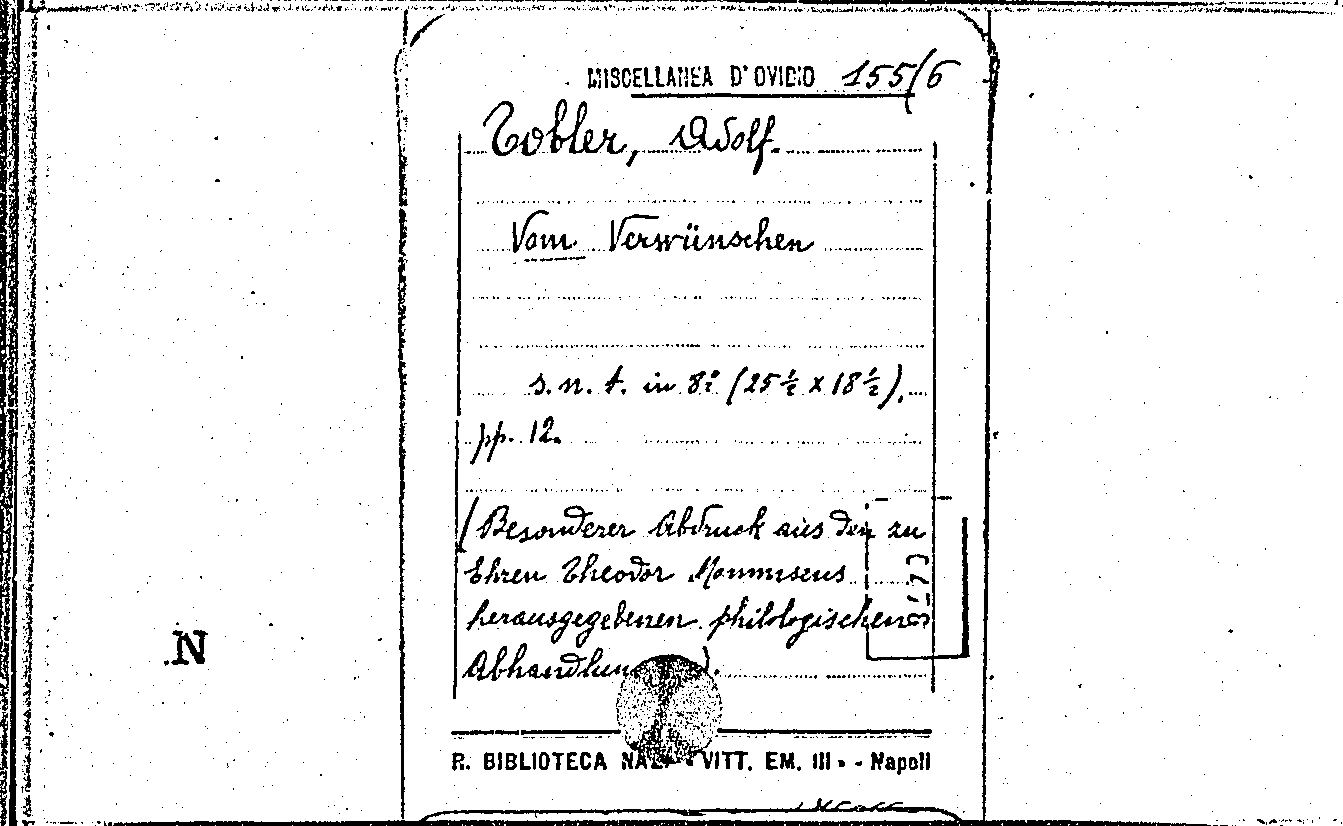 MISCELLANEA D'OVIDIO 155/6
Tobler, Adolf.
Vom Verwünschen
s. n. t. in 8º (25 ½ x 18 ½).
pp. 12.
(Besonderer Abdruck aus den zu
Ehren Theodor Mommsens
herausgegebenen philologischen
Abhandlun ).
N
R. BIBLIOTECA NAZ. - VITT. EM. III - - Napoli